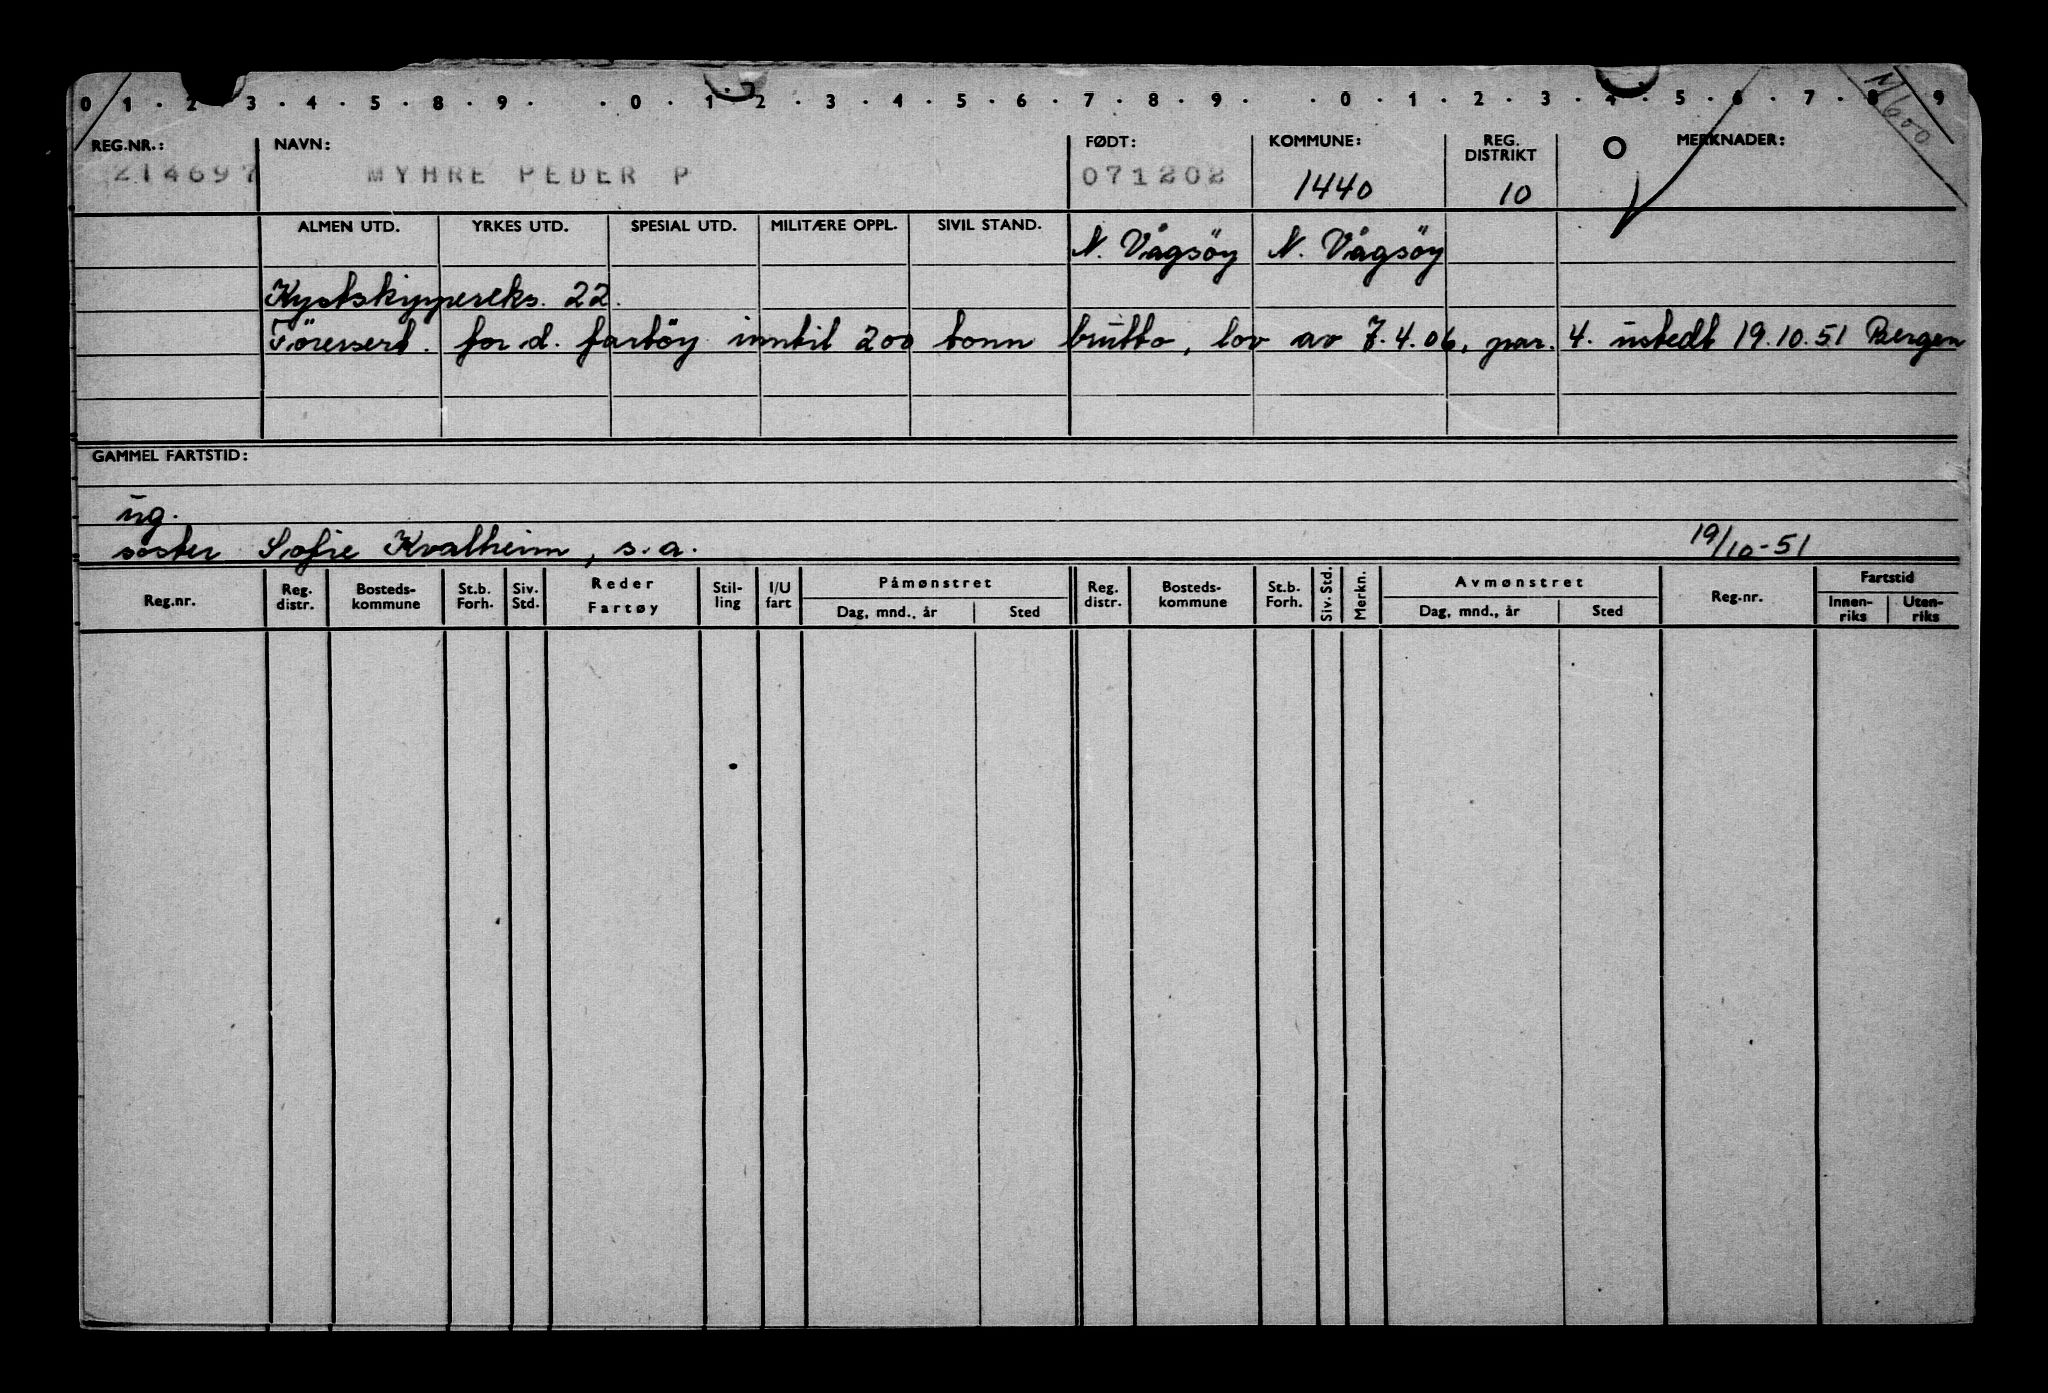 0 1 . 2 3 . 4 . 5 . 8 . 9 . . 0 . 1 . 2 . 3 . 4 . 5 . 6 . 7 . 8 . 9 . . 0 . 1 . 2 . 3 . 4 . 5 . 6 . 7 . 8 . 9
M600
REG.NR.: NAVN: FØDT: KOMMUNE: REG. DISTRIKT MERKNADER:
214697 MYHRE PEDER P 071202 1440 10
ALMEN UTD. YRKES UTD. SPESIAL UTD. MILITÆRE OPPL. SIVIL STAND. N. Vågsöy N. Vågsöy
Kystskippereks. 22.
Föresert. for d. fartöy inntil 200 tonn brutto, lov av 7.4.06, par. 4. ustedt 19.10.51 Bergen
GAMMEL FARTSTID:
ug.
söster Sofie Kvalheim, s.a. 19/10-51
Reg.nr. Reg. distr. Bosteds-kommune St.b. Forh. Siv. Std. Reder Fartøy Stil-ling I/U fart Påmønstret Dag, mnd., år Sted Reg. distr. Bosteds-kommune St.b. Forh. Siv. Std. Merkn. Avmønstret Dag, mnd., år Sted Reg.nr. Fartstid Innen-riks Uten-riks